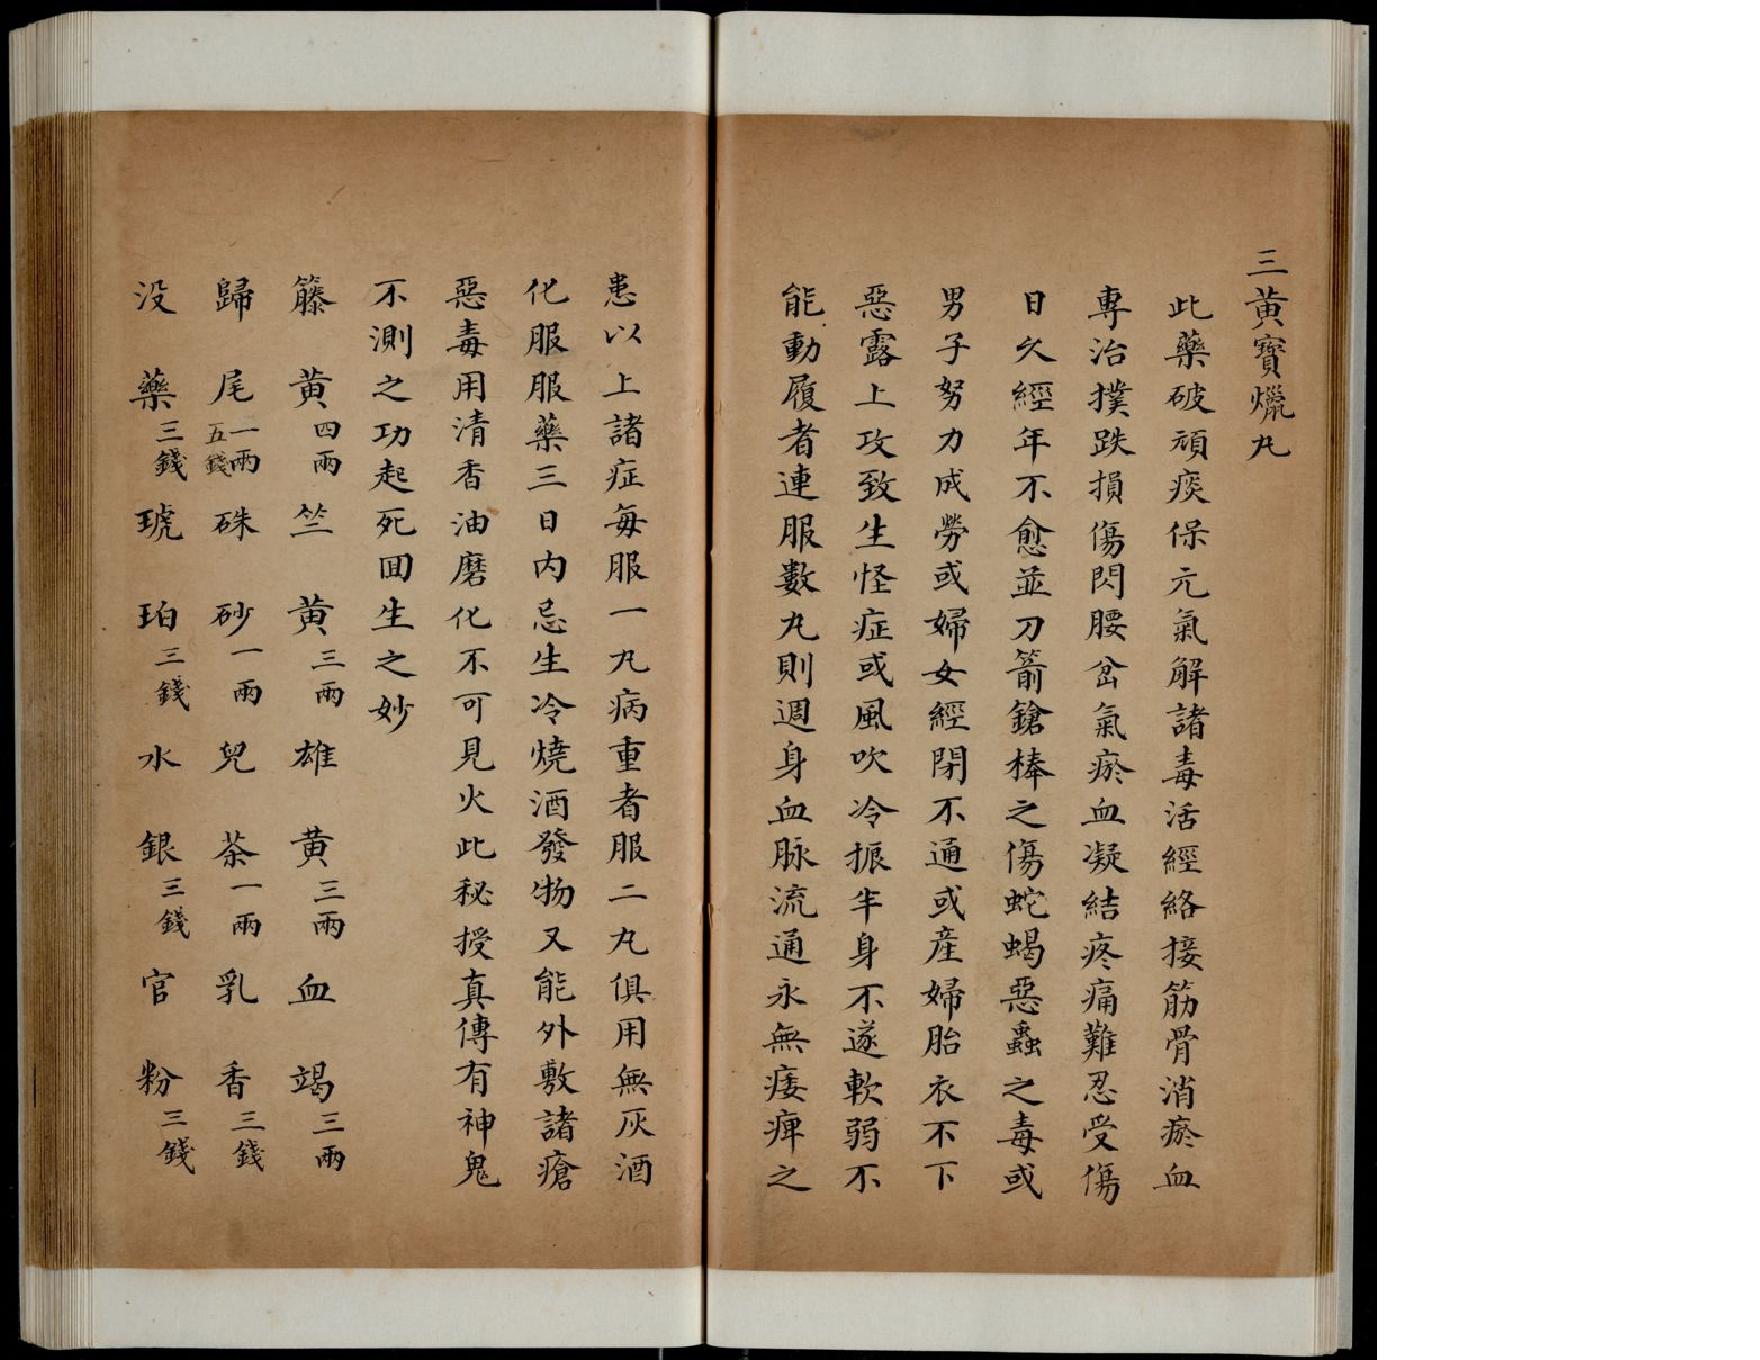 三黃寶爉丸
此藥破頑痰保元氣解諸毒活經絡接筋骨消瘀血
專治撲跌損傷閃腰岔氣瘀血凝結疼痛難忍受傷
日久經年不愈並刀箭鎗棒之傷蛇蝎惡蟲之毒或
男子努力成勞或婦女經閉不通或產婦胎衣不下
惡露上攻致生怪症或風吹冷振半身不遂軟弱不
能動履者連服數丸則週身血脉流通永無痿痺之
患以上諸症每服一丸病重者服二丸俱用無灰酒
化服服藥三日內忌生冷燒酒發物又能外敷諸瘡
惡毒用清香油磨化不可見火此秘授真傳有神鬼
不測之功起死囬生之妙
籐黃四兩 竺黃三兩 雄黃三兩 血竭三兩
歸尾一兩五錢 硃砂一兩 兒茶一兩 乳香三錢
没藥三錢 琥珀三錢 水銀三錢 官粉三錢